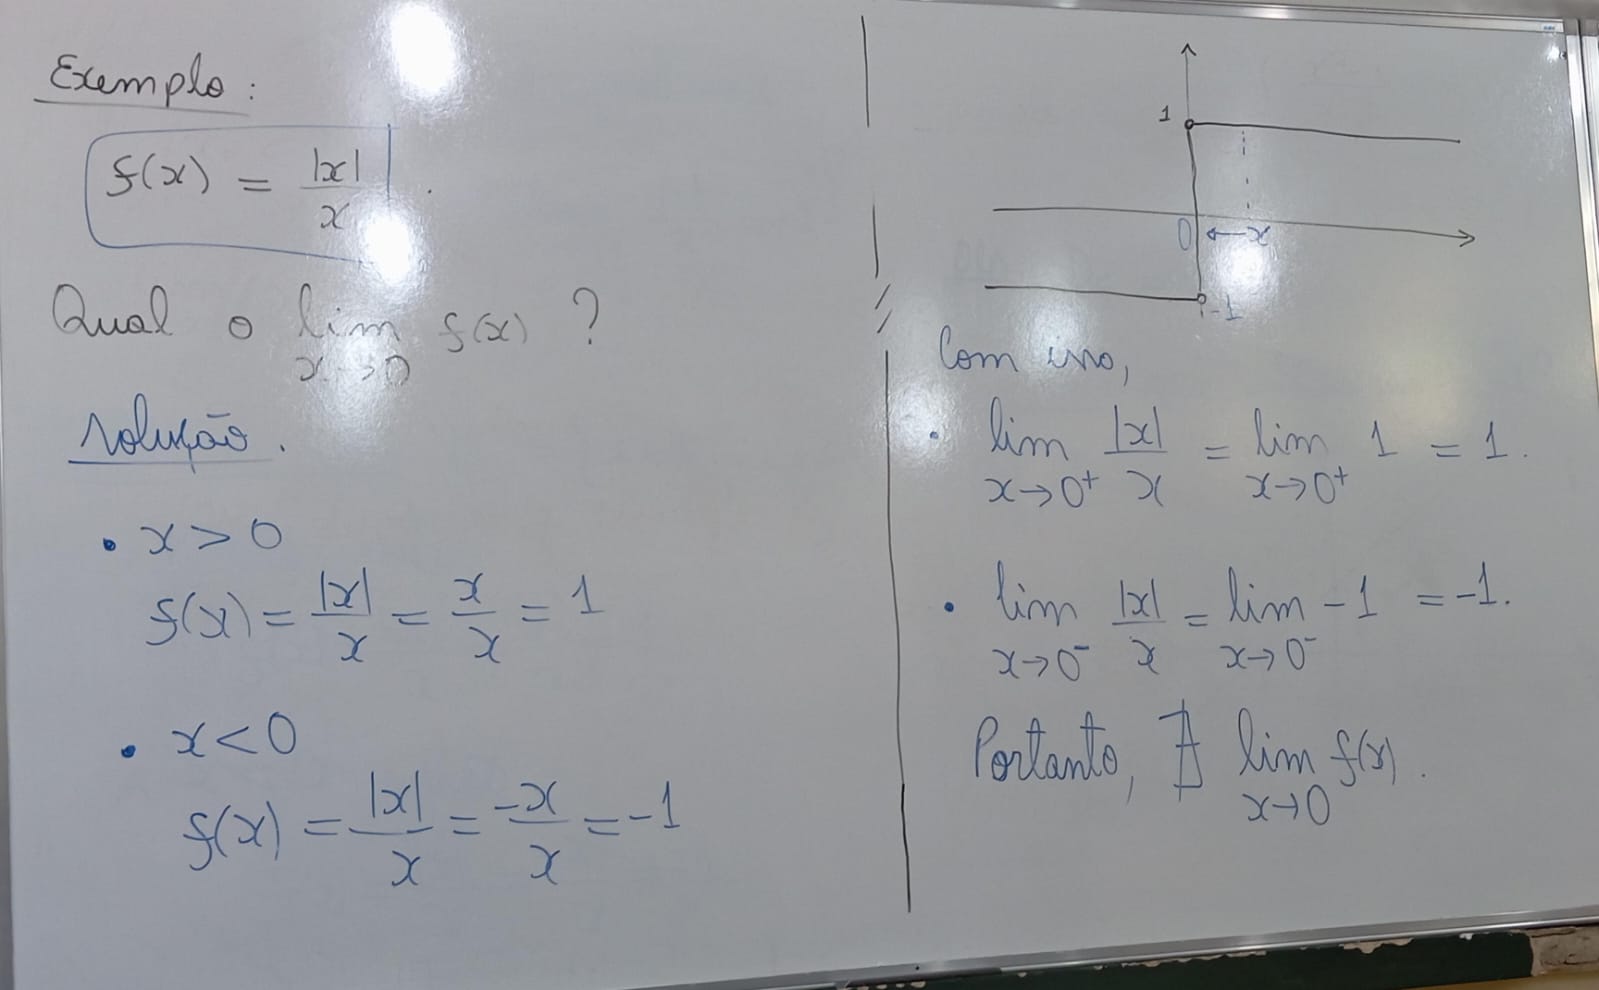 Exemplo:
f(x) = |x|/x.
Qual o lim x→0 f(x)?
Solução.
• x > 0
f(x) = |x|/x = x/x = 1
• x < 0
f(x) = |x|/x = -x/x = -1
1
0 ← x
-1
Com isso,
• lim x→0⁺ |x|/x = lim x→0⁺ 1 = 1.
• lim x→0⁻ |x|/x = lim x→0⁻ -1 = -1.
Portanto, ∄ lim x→0 f(x).